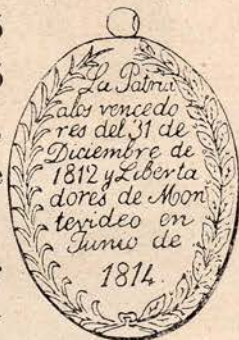 La Patria
alos vencedo
res del 31 de
Diciembre de
1812 y Liberta
dores de Mon
tevideo en
Junio de
1814.